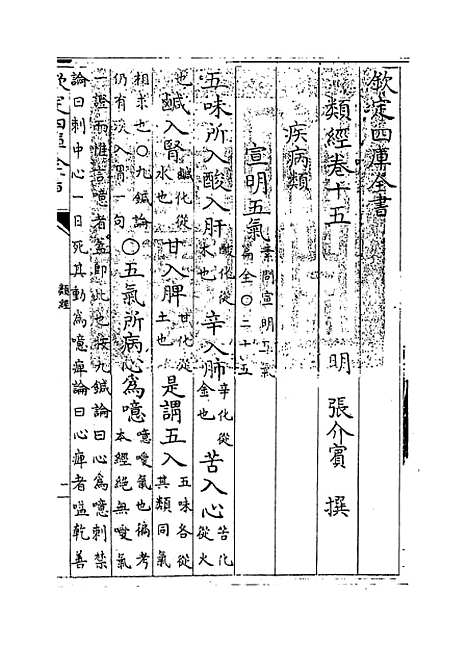 欽定四庫全書
類經卷十五
明 張介賓 撰
疾病類
宣明五氣素問宣明五氣篇全〇二十五
五味所入酸入肝酸化從木也辛入肺辛化從金也苦入心苦化從火
也鹹入腎鹹化從水也甘入脾甘化從土也是謂五入五味各從其類同氣
相求也〇九鍼論仍有淡入胃一句〇五氣所病心為噫噫噯氣也徧考本經絕無噯氣
一證而惟言噫者蓋即此也按九鍼論曰心為噫刺禁
論曰刺中心一日死其動為噫痺論曰心痺者嗌乾善
欽定四庫全書
類經
一